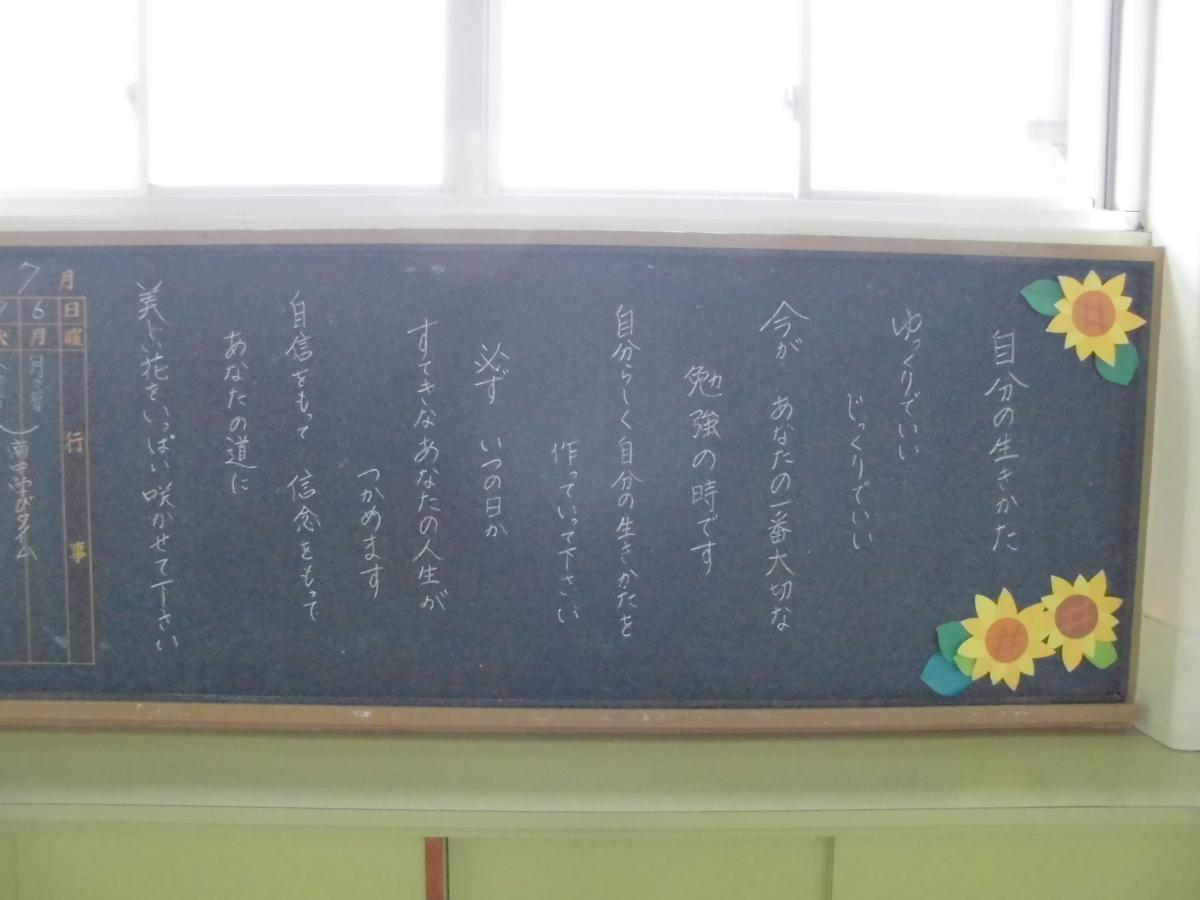 自分の生きかた
ゆっくりでいい
じっくりでいい
今が　あなたの一番大切な
勉強の時です
自分らしく自分の生きかたを
作っていって下さい
必ず　いつの日か
すてきなあなたの人生が
つかめます
自信をもって　信念をもって
あなたの道に
美しい花をいっぱい咲かせて下さい
7月
日曜行事
6月
南中学びタイム